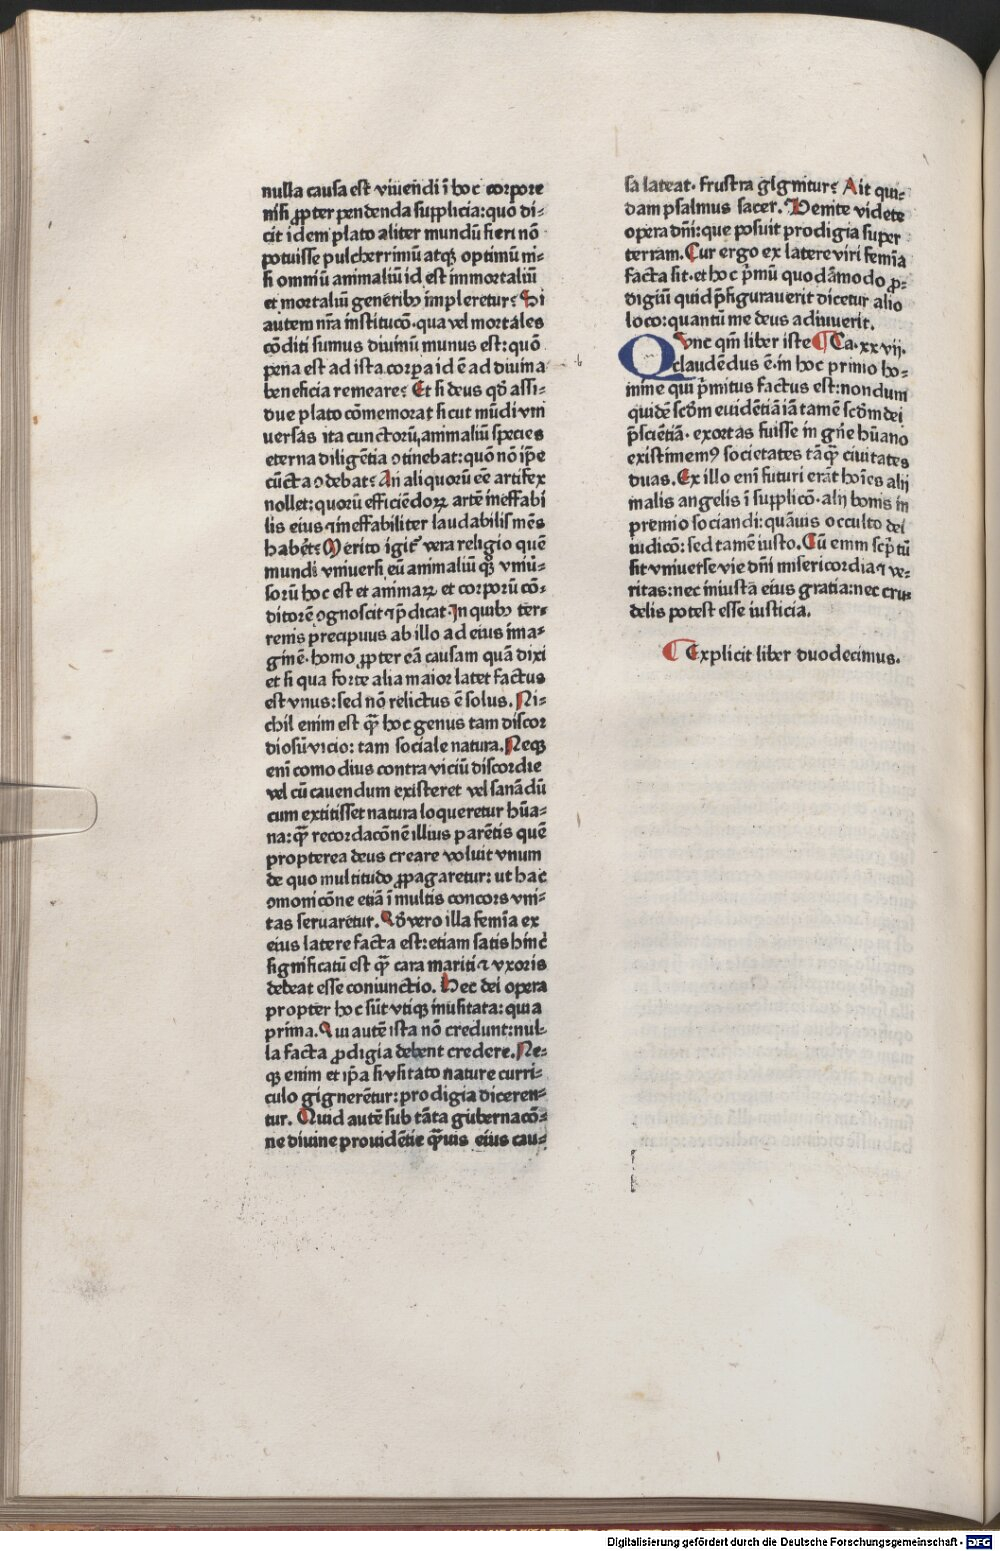 nulla causa est viuendi ī hoc corpore
nisi ꝓpter pendenda supplicia: quō di-
cit idem plato aliter mundū fieri nō
potuisse pulcherrimū atqꝫ optimū ni-
si omniū animaliū id est immortaliū
et mortaliū generibꝰ impleretur? Si
autem nr̄a institucō· qua vel mortales
cōditi sumus diuinū munus est: quō
pena est ad ista corpa id ē ad diuina
beneficia remeare? Et si deus qd̄ assi-
due plato cōmemorat sicut mūdi vni
uersas ita cunctorū animaliū species
eterna diligētia ꝯtinebat: quō nō ip̄e
cūcta ꝯdebat? An aliquorū eē artifex
nollet: quorū efficiēdoꝝ artē ineffabi
lis eius ⁊ ineffabiliter laudabilis mēs
habēt? Merito igit᷑ vera religio quē
mundi vniuersi eū animaliū qꝫ vniū-
sorū hoc est et animaꝝ et corporū cō-
ditorē ꝯgnoscit ⁊ p̄dicat· In quibꝰ ter-
renis precipuus ab illo ad eius ima-
ginē· homo ꝓpter eā causam quā dixi
et si qua forte alia maior latet factus
est vnus: sed nō relictus ē solus. Ni-
chil enim est qᷓ hoc genus tam discor
diosū vicio: tam sociale natura. Neqꝫ
eni ͫ comodius contra viciū discordie
vel cū cauendum existeret vel sanādū
cum extitisset natura loqueretur hūa-
na: qᷓ recordacōnē illius parētis quē
propterea deus creare voluit vnum
de quo multitudo ꝓpagaretur: ut hac
ꝯmonicōne etiā ī multis concors vni-
tas seruaretur. Qd̄ vero illa femīa ex
eius latere facta est: etiam satis hinc
significatū est qᷓ cara mariti ⁊ vxoris
debeat esse coniunctio. Hec dei opera
propter hoc sūt vtiqꝫ inusitata: quia
prima. Qui autē ista nō credunt: nul-
la facta ꝓdigia debent credere. Ne-
qꝫ enim et ip̄a si vsitato nature curri-
culo gignerētur: prodigia diceren-
tur. Quid autē sub tāta gubernacō-
ne diuine prouidētie qᷓuis eius cau-
sa lateat· frustra gignitur? Ait qui-
dam psalmus sacer. Venite videte
opera dn̄i: que posuit prodigia super
terram. Cur ergo ex latere viri femīa
facta sit· et hoc p̄mū quodāmodo ꝓ-
digiū quid p̄figurauerit dicetur alio
loco: quantū me deus adiuuerit.
QVnc qm̄ liber iste Ca· xxvij·
claudēdus ē· in hoc primo ho-
mine qui p̄mitus factus est: nondum
quidē scd̄m euidētiā iā tamē scd̄m dei
p̄sciētiā· exortas fuisse in gn̄e hūano
existimemꝰ societates tāqᷓ ciuitates
duas. Ex illo eni ͫ futuri erāt hoīes alij
malis angelis ī supplicō· alij bonis in
premio sociandi: quāuis occulto dei
iudicō: sed tamē iusto. Cū enim scp̄tū
sit vniuerse vie dn̄i misericordia ⁊ ve-
ritas: nec iniusta eius gratia: nec cru-
delis potest esse iusticia.
Explicit liber duodecimus.
Digitalisierung gefördert durch die Deutsche Forschungsgemeinschaft - DFG